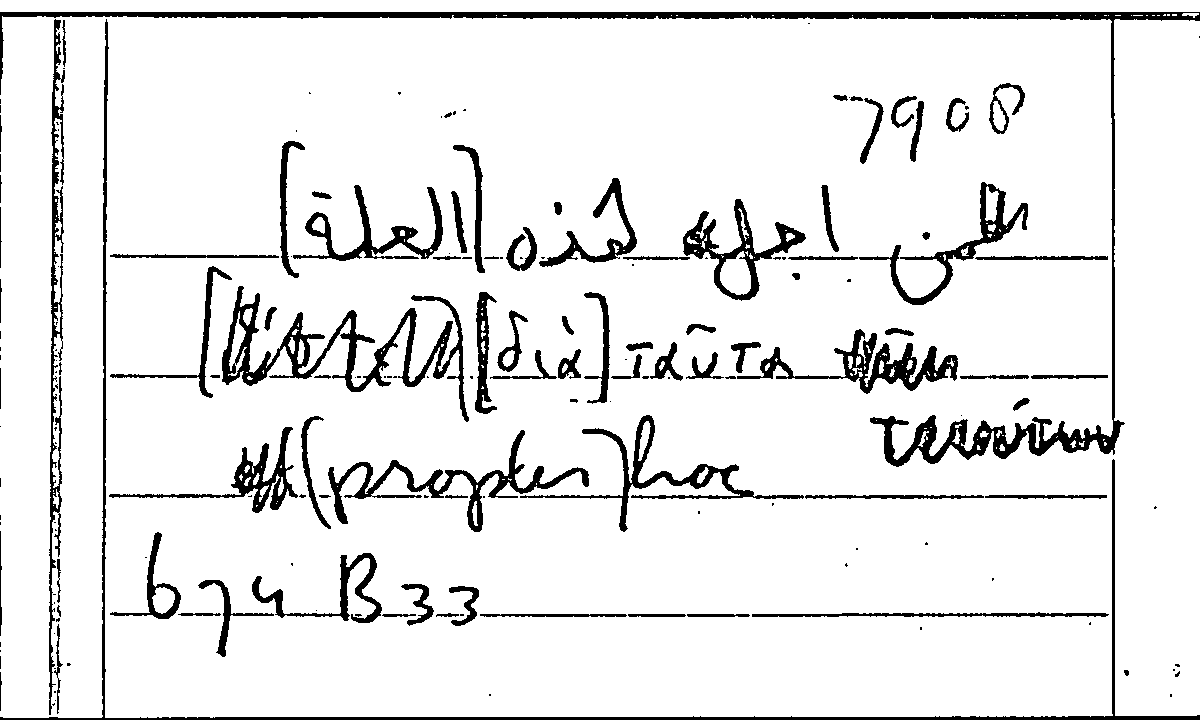 7908
من اجل هذه [العلة]
[διὰ] ταῦτα
(propter) hoc
674 B33